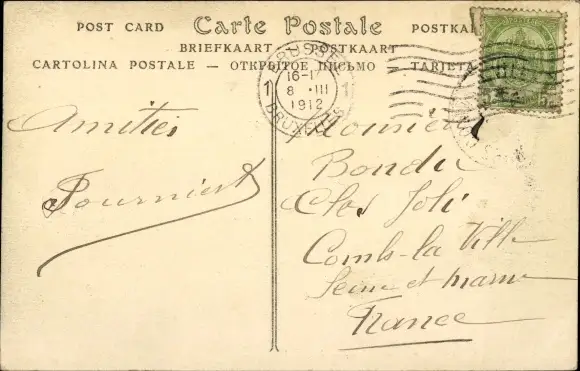 POST CARD Carte Postale POSTKA
BRIEFKAART – POSTKAART
CARTOLINA POSTALE – ОТКРЫТОЕ ПИСЬМО – TARJETA
BRUSSEL
16-17
1 8 III 1
1912
BRUXELLES
Amitiés
Fournier
Monsieur
Bondi
Clos Joli
Combs-la Ville
Seine et marne
France